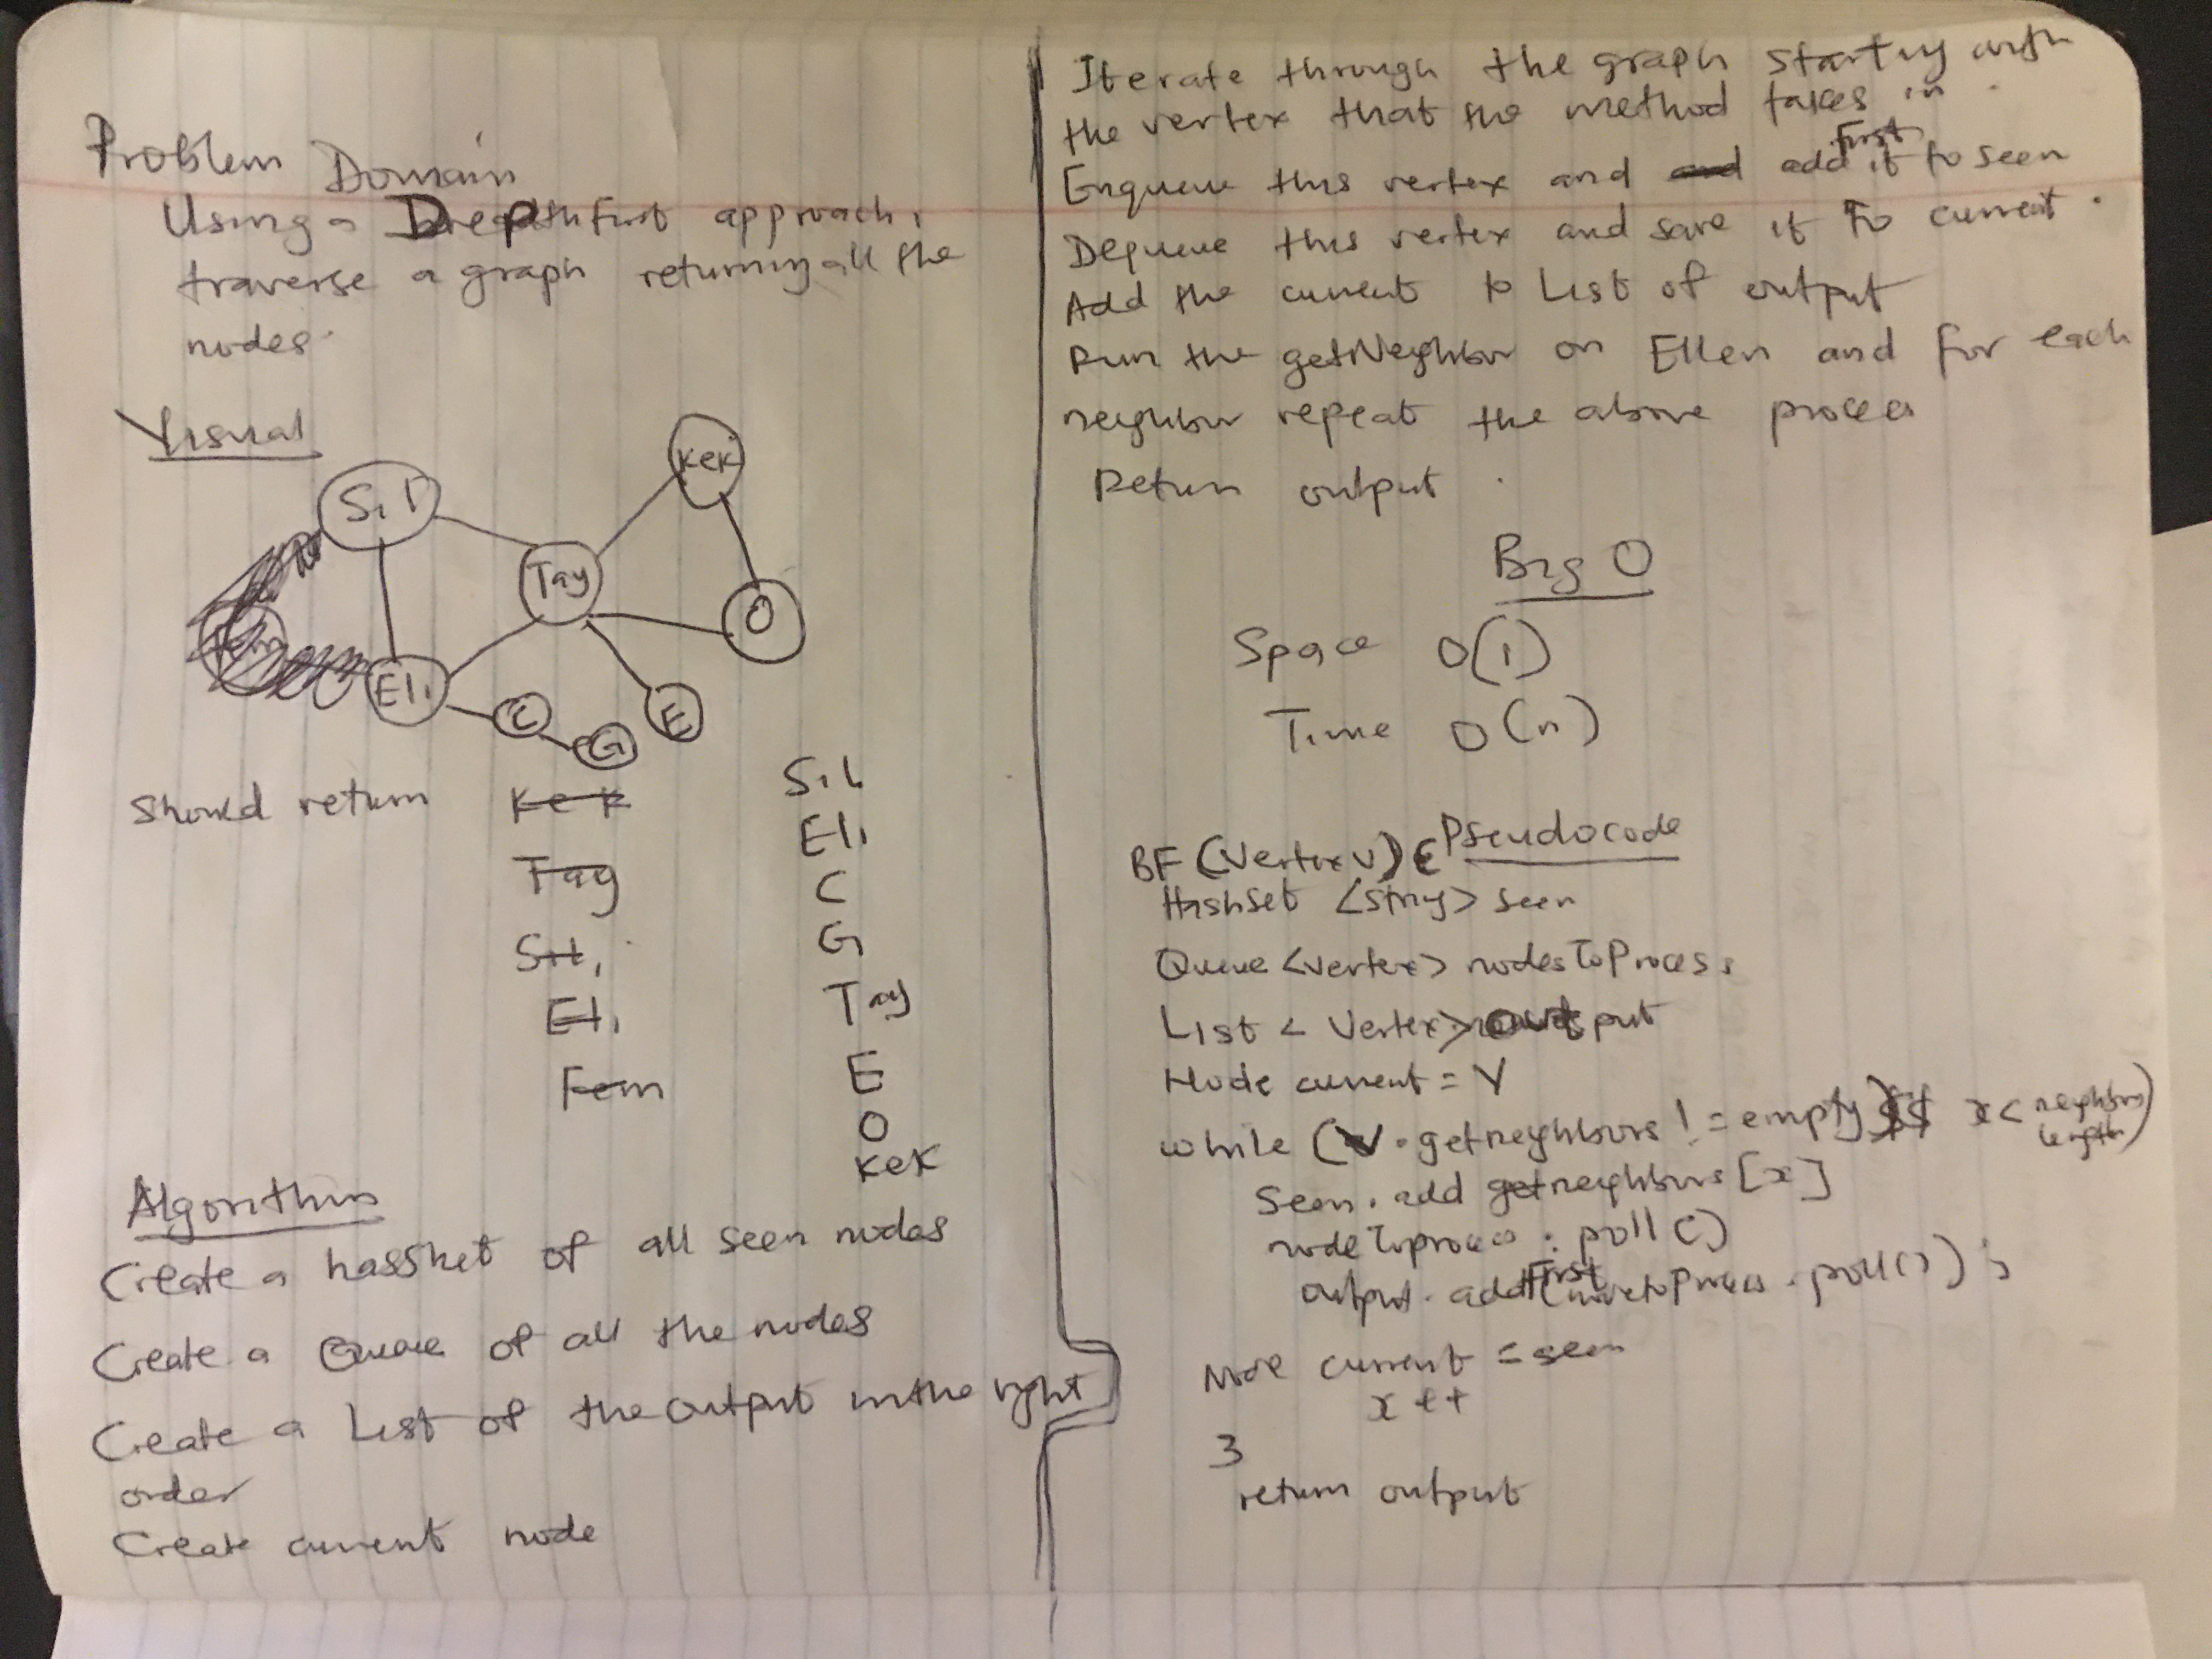 Problem Domain
Using a Depth first approach
traverse a graph returning all the
nodes.
Visual
Sil
Eli
Tay
Kek
C
G
E
O
Should return
Kek
Tay
Eli
Fern
Sil
Eli
C
G
Tay
E
O
Kek
Algorithm
Create a hasshet of all seen nodes
Create a Queue of all the nodes
Create a List of the output in the right
order
Create current node
Iterate through the graph starting with
the vertex that the method takes in.
Enqueue this vertex and add First it to seen
Dequeue this vertex and save it to current.
Add the current to List of output
run the getNeighbor on Ellen and for each
neighbor repeat the above process
Return output.
Big O
Space O(1)
Time O(n)
Pseudocode
BF(Vertex v){
HashSet <String> seen
Queue <Vertex> nodesToProcess
List < Vertex> output
Node current = v
while (v.getneighbours != empty && x < neighbors length)
Seen.add getneighbours [x]
nodeToprocess.poll()
output.addFirst(nodetoProcess.poll());
Node current = seen
x++
}
return output